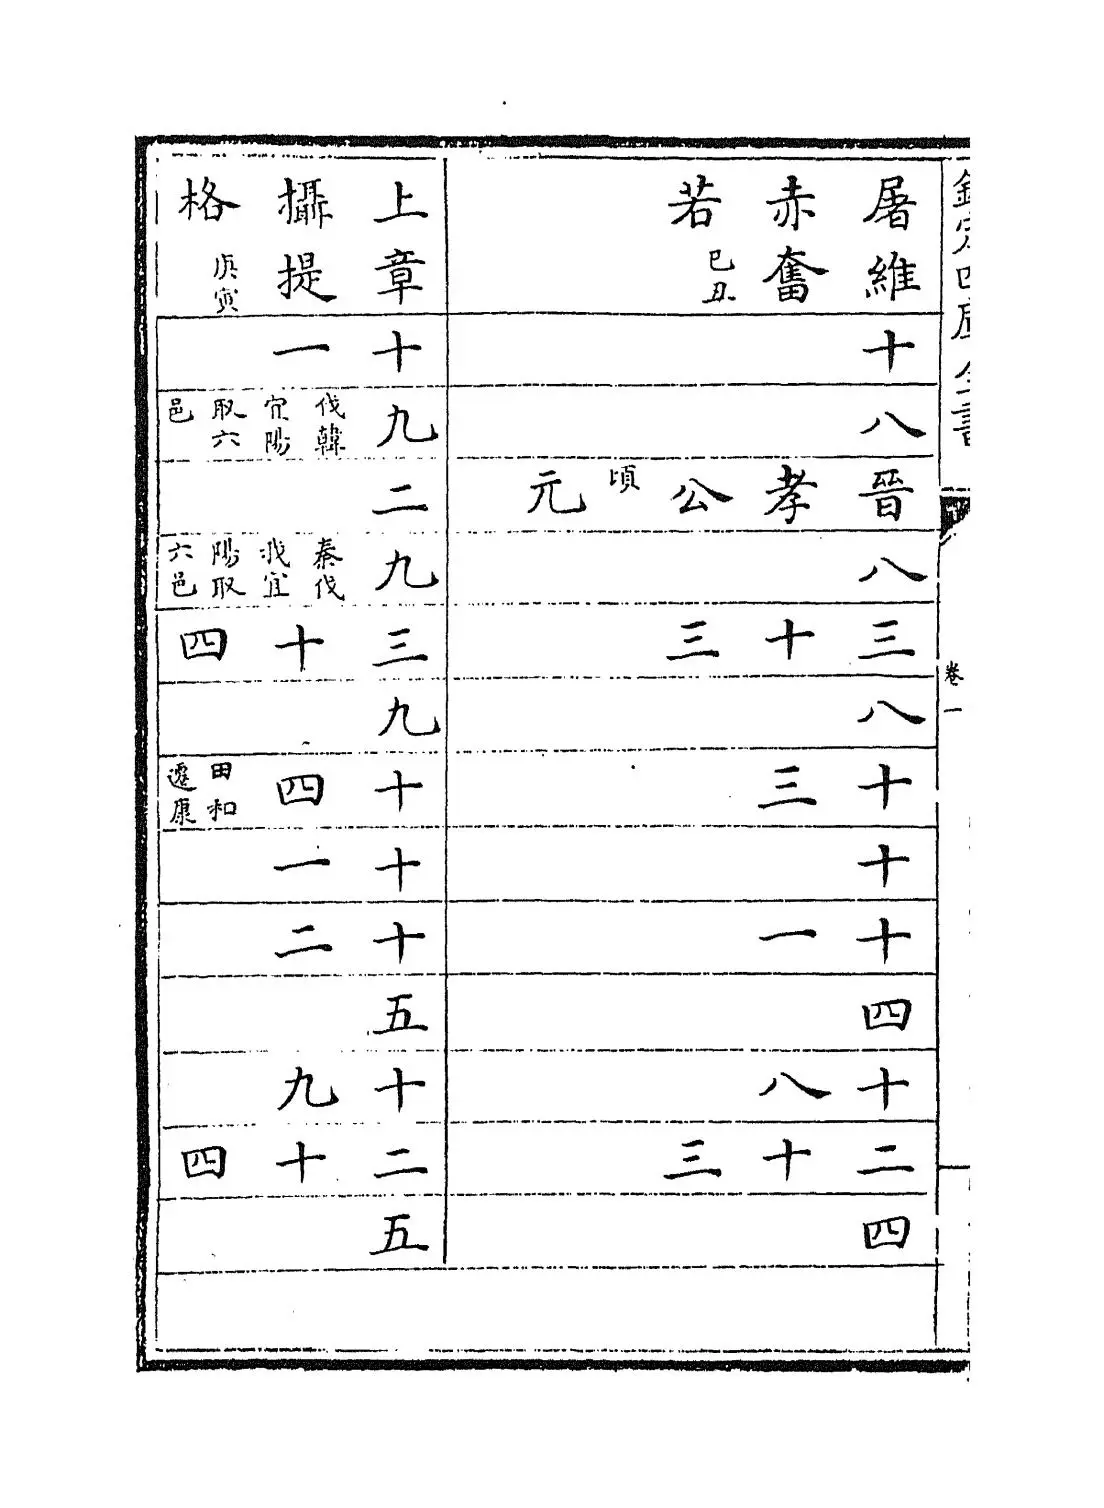 欽定四庫全書
卷一
屠維赤奮若 己丑
十
八
晉孝公 頃 元
八
三十三
八
十三
十
十一
四
十八
二十三
四
上章攝提格 庚寅
十一
九 伐韓宜陽取六邑
二
九 秦伐我宜陽取六邑
三十四
九
十四 田和遷康
十一
十二
五
十九
二十四
五